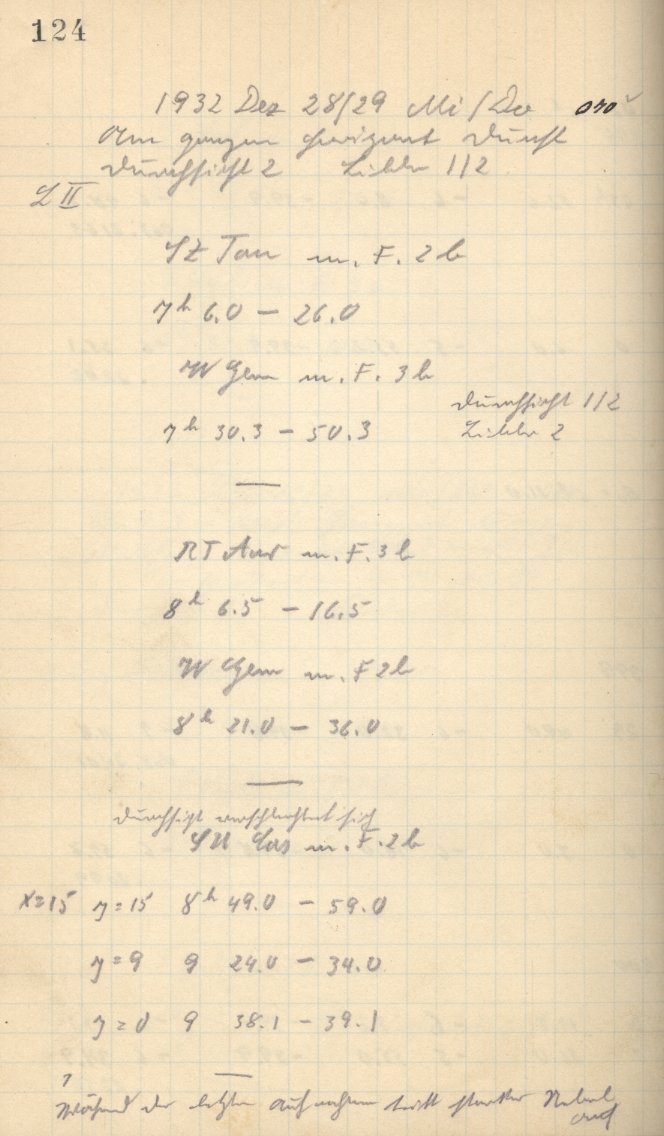 124
1932 Dez 28/29 Mi/Do
Am ganzen Horizont Dunst
Durchsicht 2 Bilder 1/2
L II
SZ Tau m. F. 2 b
7h 6.0 – 26.0
W Gem m. F. 3 b
Durchsicht 1/2
7h 30.3 – 50.3
Bilder 2
RT Aur m. F. 3 b
8h 6.5 – 16.5
W Gem m. F 2 b
8h 21.0 – 36.0
Durchsicht verschlechtert sich
SU Cas m. F. 2 b
x=15 y=15 8h 49.0 – 59.0
y=9 9 24.0 – 34.0
y=0 9 38.1 – 39.1
Während der letzten Aufnahme tritt starker Nebel
auf